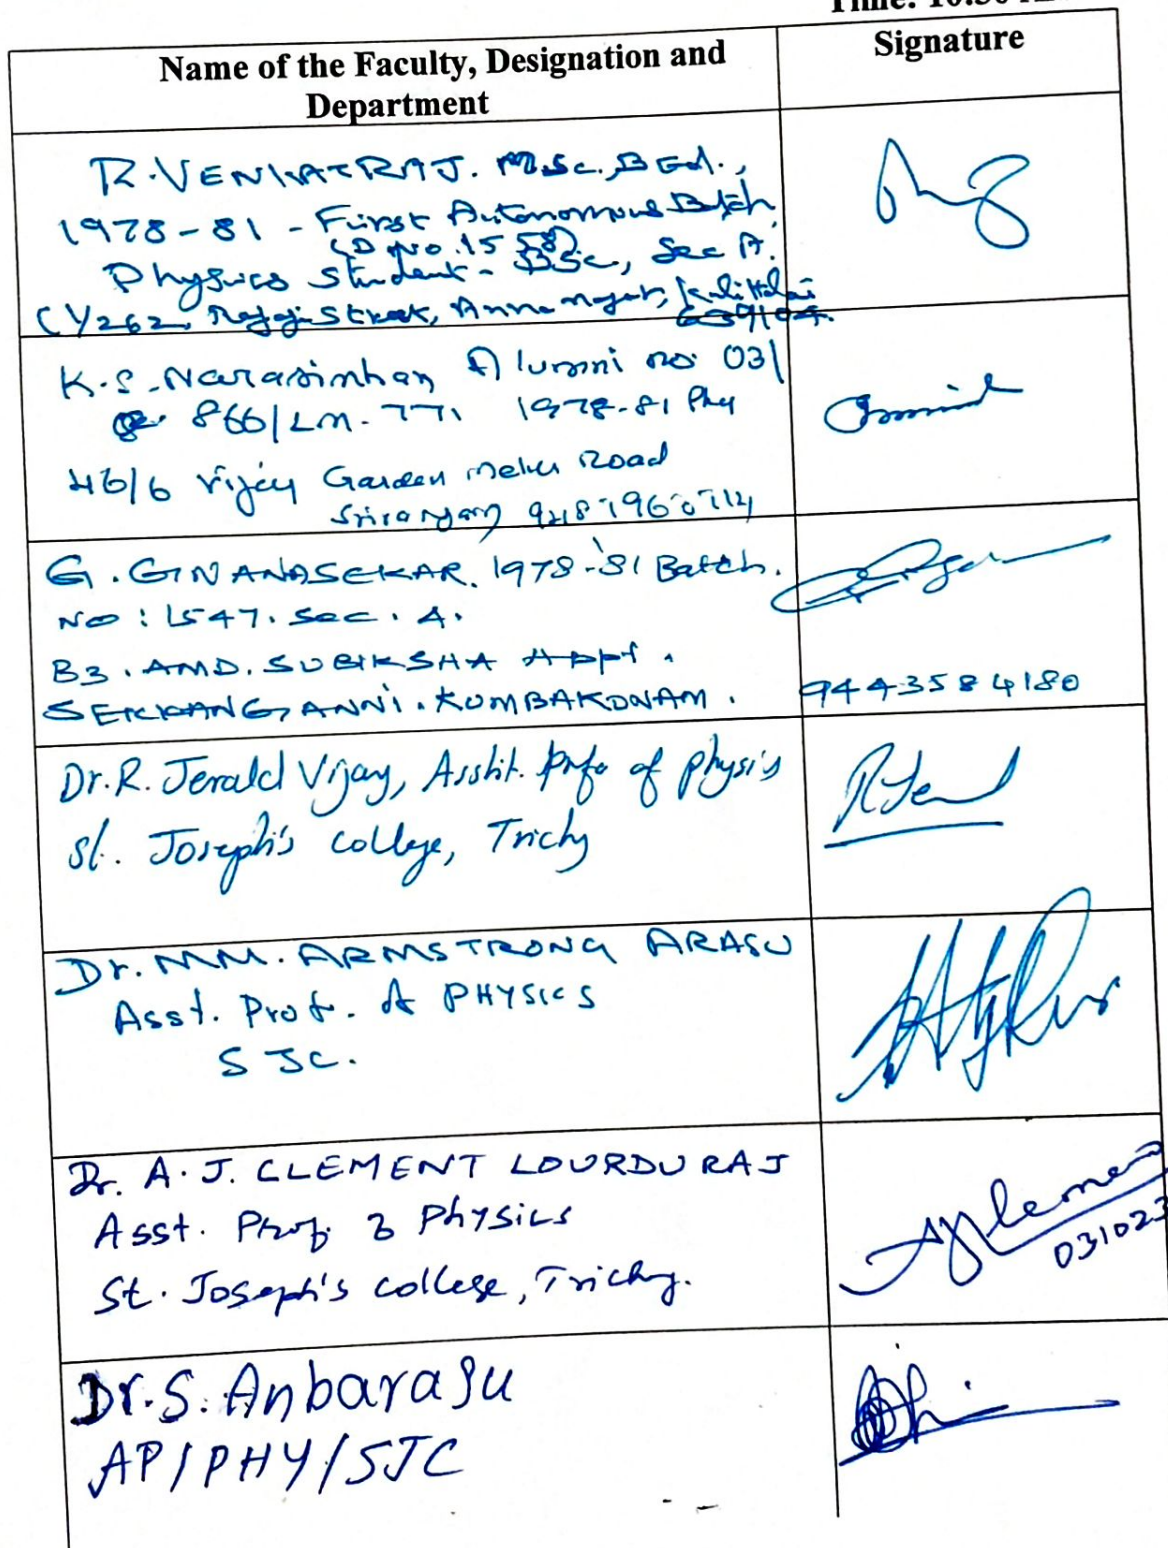 Time: 10:30
Name of the Faculty, Designation and Signature
Department
R. VENKATRAJ. M.Sc., B Ed.,
1978-81 - First Autonomous Batch
(D No. 1558)
Physics Student - BSc, Sec A.
CY262, Rajaji Street, Anna nagar, Kulithalai
639104.
K.S. Narasimhan Alumni no 03/
866/LM-771 1978-81 Phy
46/6 Vijay Garden Melur Road
Srirangam
G. GNANASEKAR. 1978-'81 Batch.
NO: 1547. Sec. A.
B3. AMD. SUBIKSHA Appt.
SEKKANGANNI. KUMBAKONAM. 9443584180
Dr. R. Jerald Vijay, Asstt. Prof of Physis
St. Joseph's College, Trichy
Dr. MM. ARMSTRONG ARASU
Asst. Prof. of PHYSICS
SJC.
Dr. A. J. CLEMENT LOURDU RAJ
Asst. Prof. of Physics
031023
St. Joseph's college, Trichy.
Dr. S. Anbarasu
AP/PHY/SJC